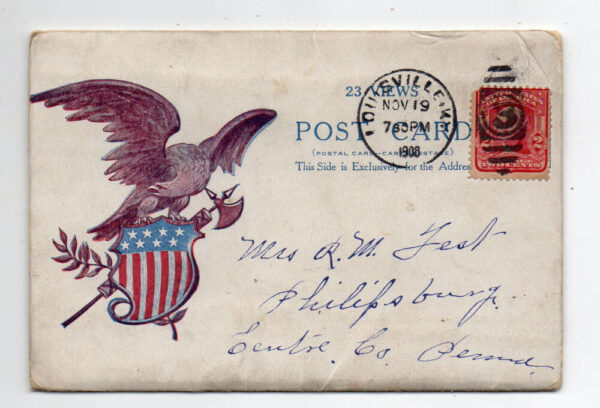 23 VIEWS
POST CARD
(POSTAL CARD—CARTE POSTALE)
This Side is Exclusively for the Address
LOUISVILLE, KY.
NOV 19
7 PM
1908
2
TWO CENTS
Mrs R. M. Test
Philipsburg
Centre. Co. Penna